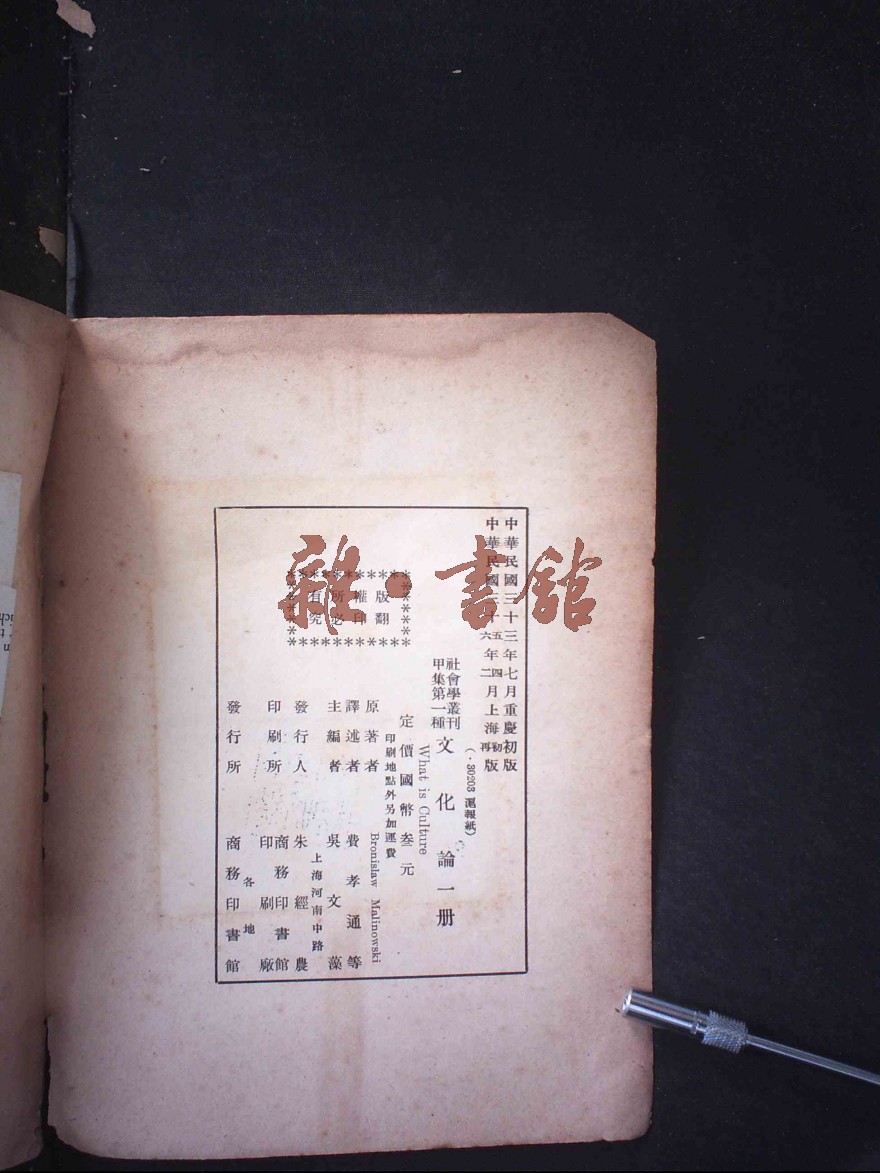 中華民國三十三年七月重慶初版
中華民國三十五年四月上海初版
六 二 再
(·30203 滬報紙)
社會學叢刊
甲集第一種
文化論一册
What is Culture
定價國幣叁元
印刷地點外另加運費
版權所有
翻印必究
原著者 Bronislaw Malinowski
譯述者 費孝通等
主編者 吳文藻
上海河南中路
發行人 朱經農
印刷所 商務印書館
印刷廠
各地
發行所 商務印書館
雜·書館